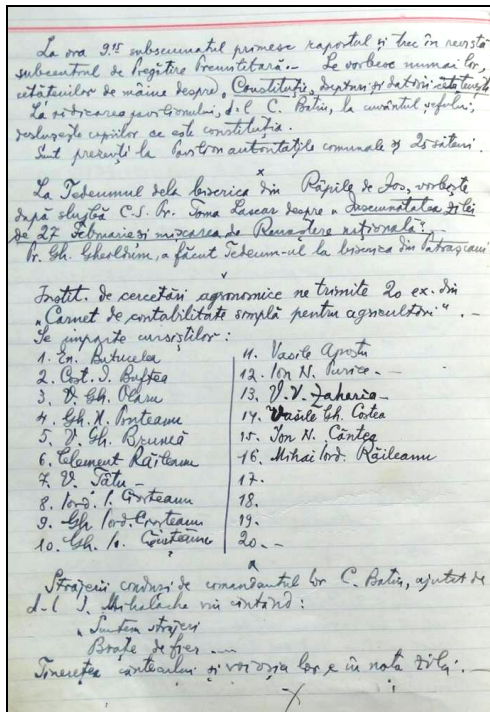 La ora 9.15 subsemnatul primesc raportul și trec în revistă
subcentrul de Pregătire Premilitară. - Le vorbesc numai lor,
cetățenilor de mâine despre „Constituție, drepturi și datorii cetățenești
La ridicarea pavilionului, d-l C. Batin, la cuvântul șefului,
deslușește copiilor ce este constituția.
Sunt prezenți la Pavilion autoritățile comunale și 25 săteni.
x
La Tedeumul dela biserica din Râpile de Jos, vorbește
după slujbă C.S. Pr. Toma Lascar despre „Însemnătatea zilei
de 27 Februarie și mișcarea de Renaștere națională". -
Pr. Gh. Gherldim, a făcut Tedeum-ul la biserica din Pătrășcani
v
Instit. de cercetări agronomice ne trimite 20 ex. din
„Carnet de contabilitate simplă pentru agricultori". -
Se împarte cursiștilor :
1. En. Butucelea
2. Cost. I. Buftea
3. V. Gh. Olaru
4. Gh. N. Ponteanu
5. V. Gh. Brumă
6. Clement Răileanu
7. V. Tâtu -
8. Iord. I. Croiteanu
9. Gh. Iord. Croiteanu
10. Gh. Io.
11. Vasile Apostu
12. Ion N. Purice. -
13. V. V. Zaharia -
14. Vasile Gh. Costea
15. Ion N. Cântea
16. Mihai Iord. Răileanu
17.
18.
19.
20. -
x
Străjerii conduși de comandantul lor C. Batin, ajutat de
d-l I. Mihalache vin cântând :
„Suntem străjeri
Brațe de fier ....
Tinerețea cântecului și voioșia lor e în nota zilei. -
x